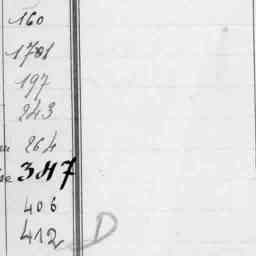 160
1781
197
243
264
347
406
412 D